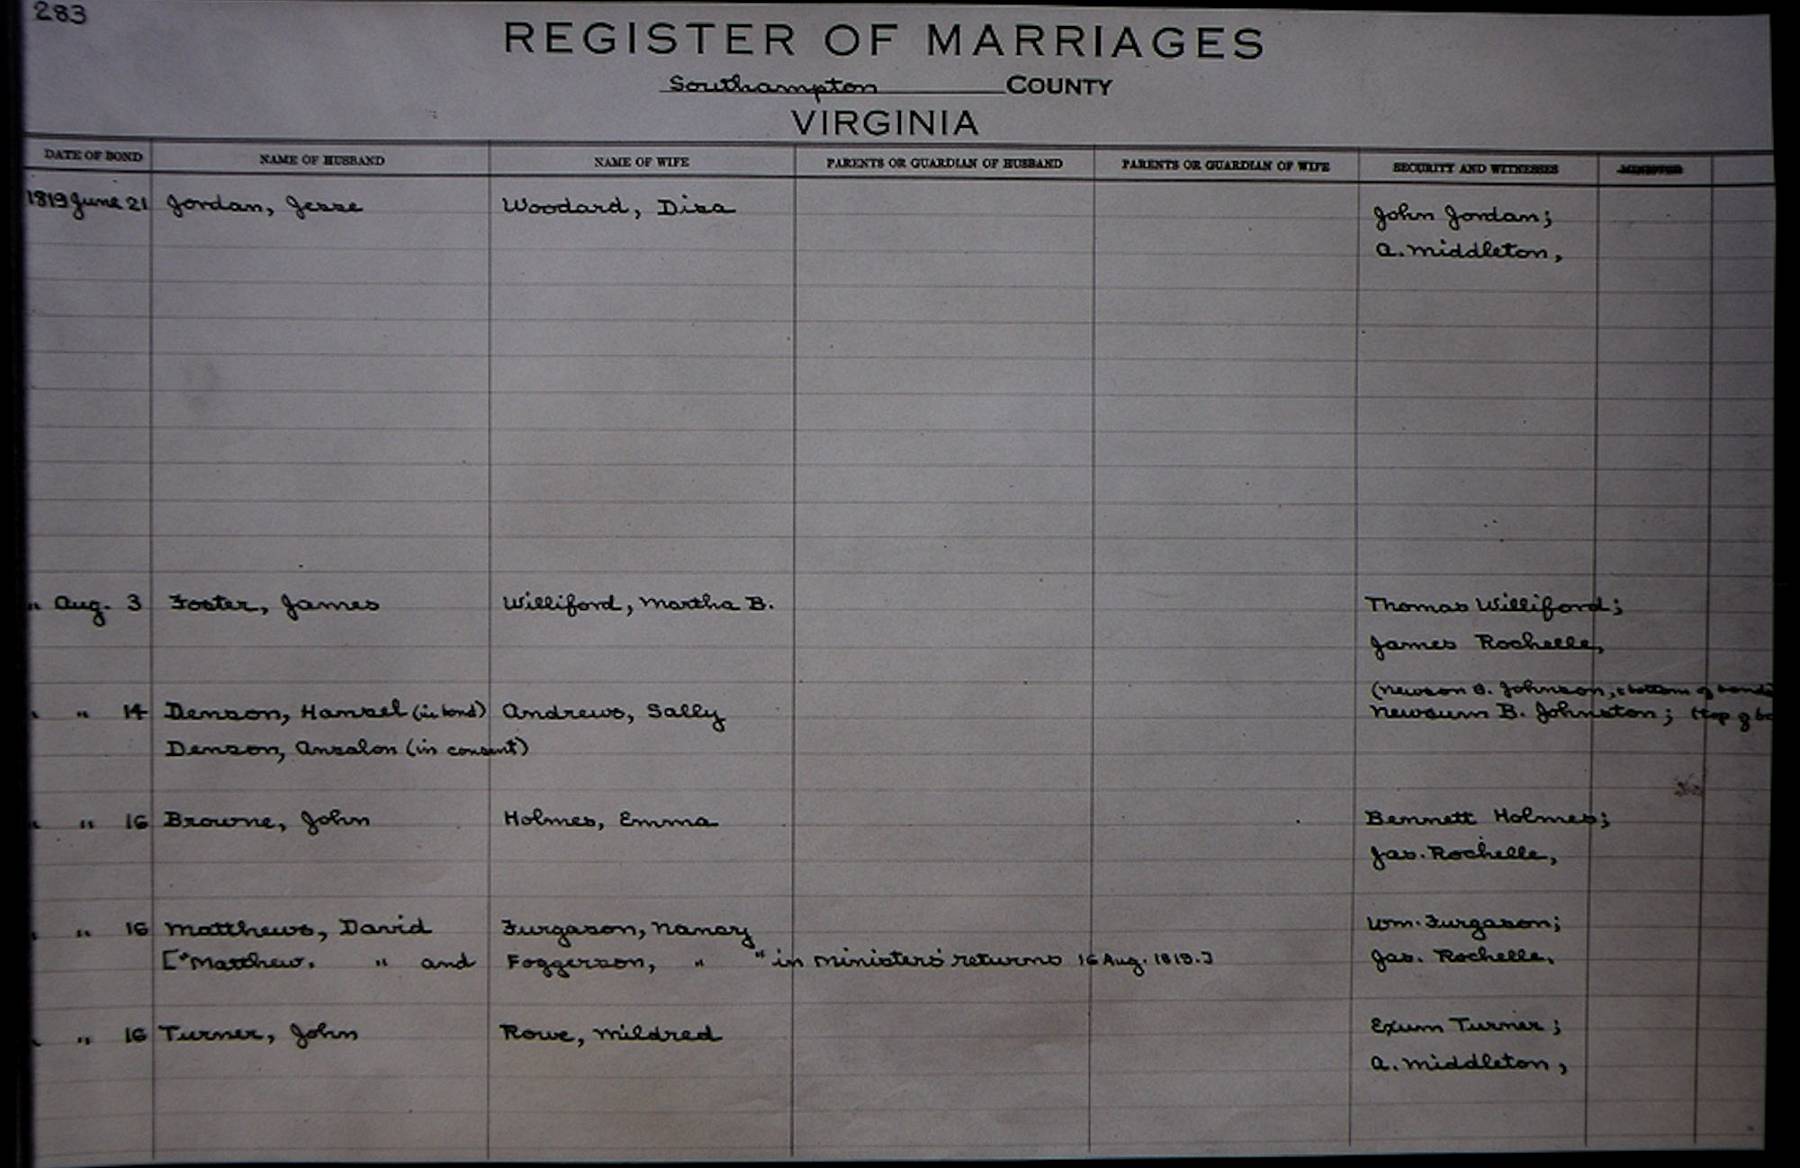 283
REGISTER OF MARRIAGES
Southampton COUNTY
VIRGINIA
DATE OF BOND NAME OF HUSBAND NAME OF WIFE PARENTS OR GUARDIAN OF HUSBAND PARENTS OR GUARDIAN OF WIFE SECURITY AND WITNESSES MINISTER
1819 June 21 Jordan, Jesse Woodard, Disa John Jordan;
A. Middleton,
" Aug. 3 Foster, James Williford, Martha B. Thomas Williford;
James Rochelle,
(Newson B. Johnson; bottom of bond
" 14 Denson, Hansel (in bond) Andrews, Sally Newsum B. Johnston; (top of
Denson, Ansalon (in consent)
" 16 Browne, John Holmes, Emma Bennett Holmes;
Jas. Rochelle,
" 16 Matthews, David Furgason, Nancy Wm. Furgason;
["Matthew, " and Foggerson, " " in ministers' returns 16 Aug. 1819.] Jas. Rochelle,
" 16 Turner, John Rowe, Mildred Exum Turner;
A. Middleton,